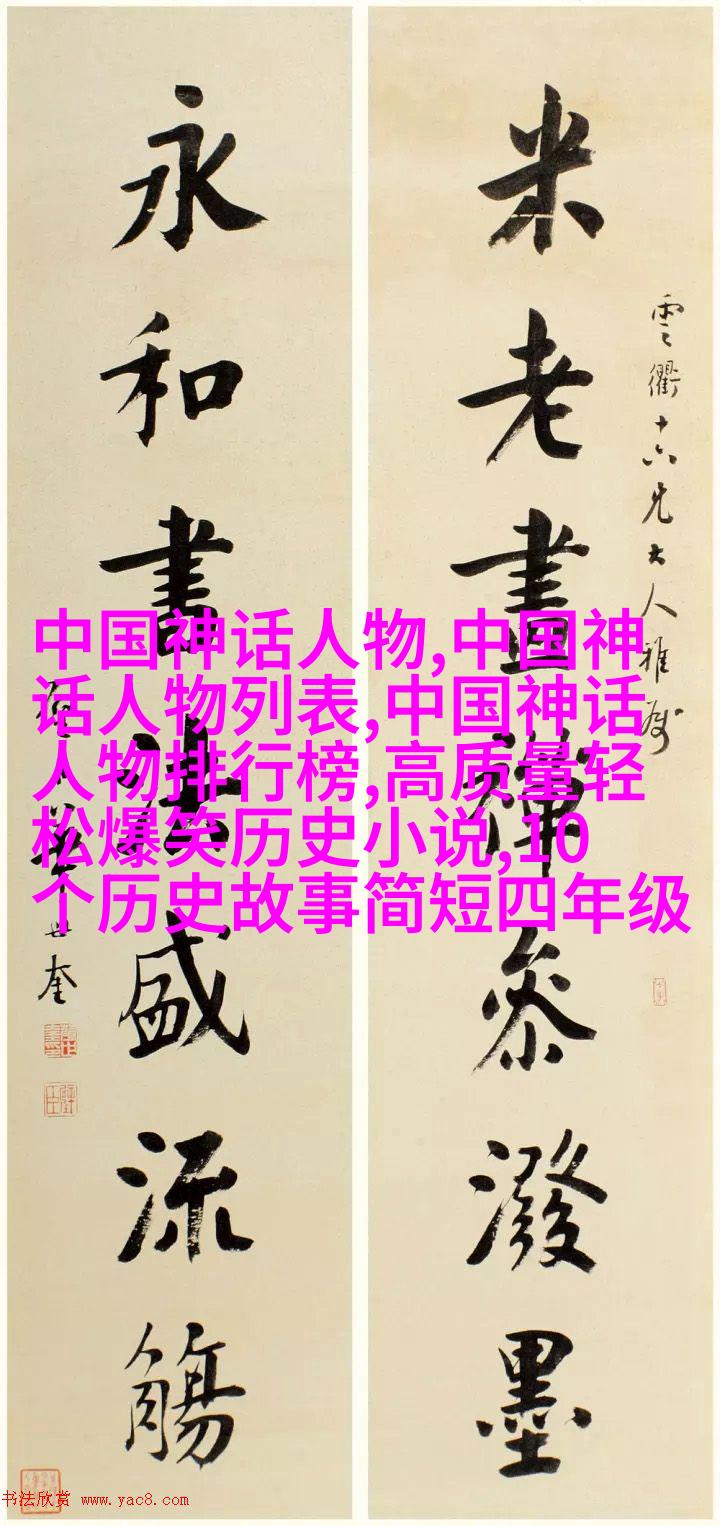 雲衢十六兄大人雅属
米老畫禪叅潑墨
永和書法盛流觴
華世奎
中国神话人物,中国神
话人物列表,中国神话
人物排行榜,高质量轻
松爆笑历史小说,10
个历史故事简短四年级
书法欣赏 www.yac8.com